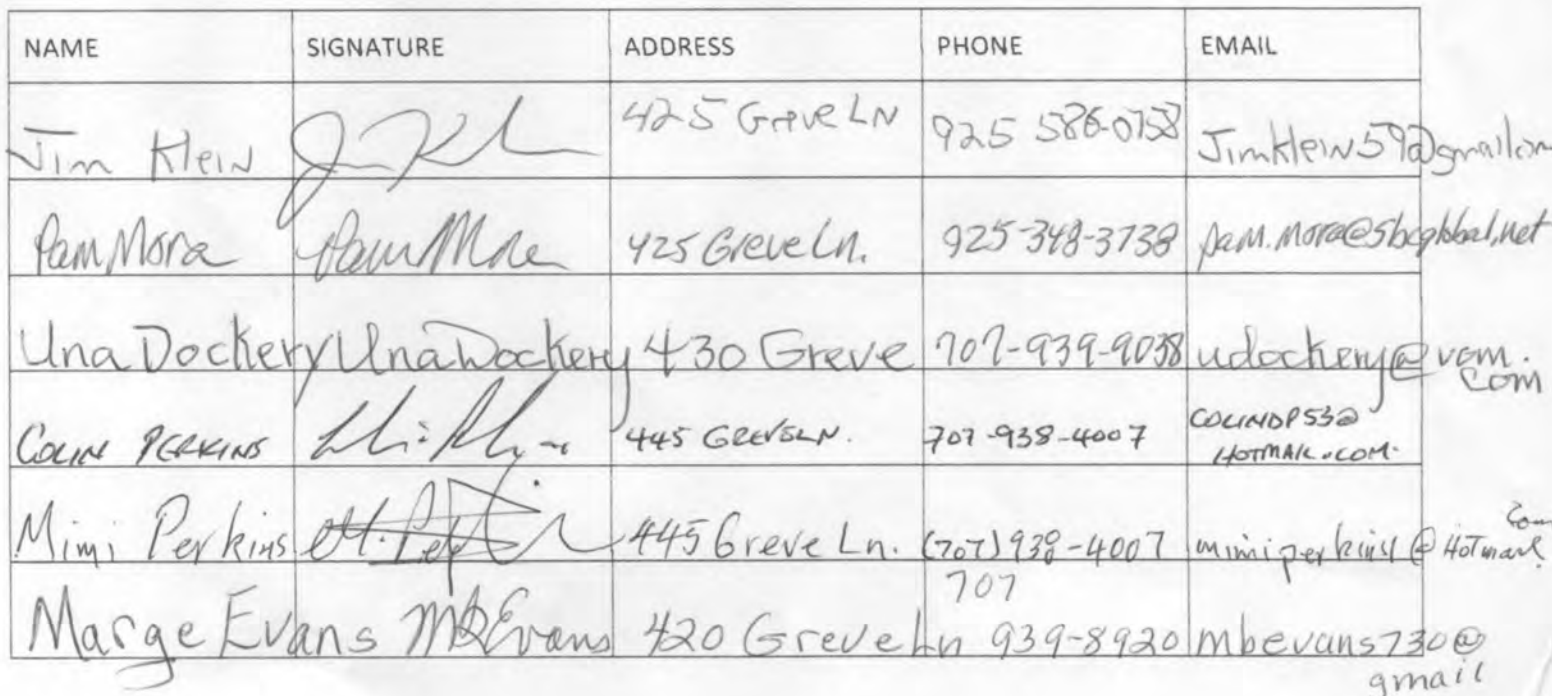 NAME SIGNATURE ADDRESS PHONE EMAIL
Jim Klein 425 Greve LN 925 586-0758 Jimklein59@gmail.com
Pam Mora Pam Mora 425 Greve Ln. 925-348-3738 pam.mora@sbcglobal.net
Una Dockery Una Dockery 430 Greve 707-939-9038 udockery@vom.
com
COLIN PERKINS 445 GREVE LN. 707-938-4007 COLINDP53@
HOTMAIL.COM.
Mimi Perkins 445 Greve Ln. (707) 938-4007 @ Hotmail.
com
707
Marge Evans MBEvans 420 Greve Ln 939-8920 mbevans730@
gmail